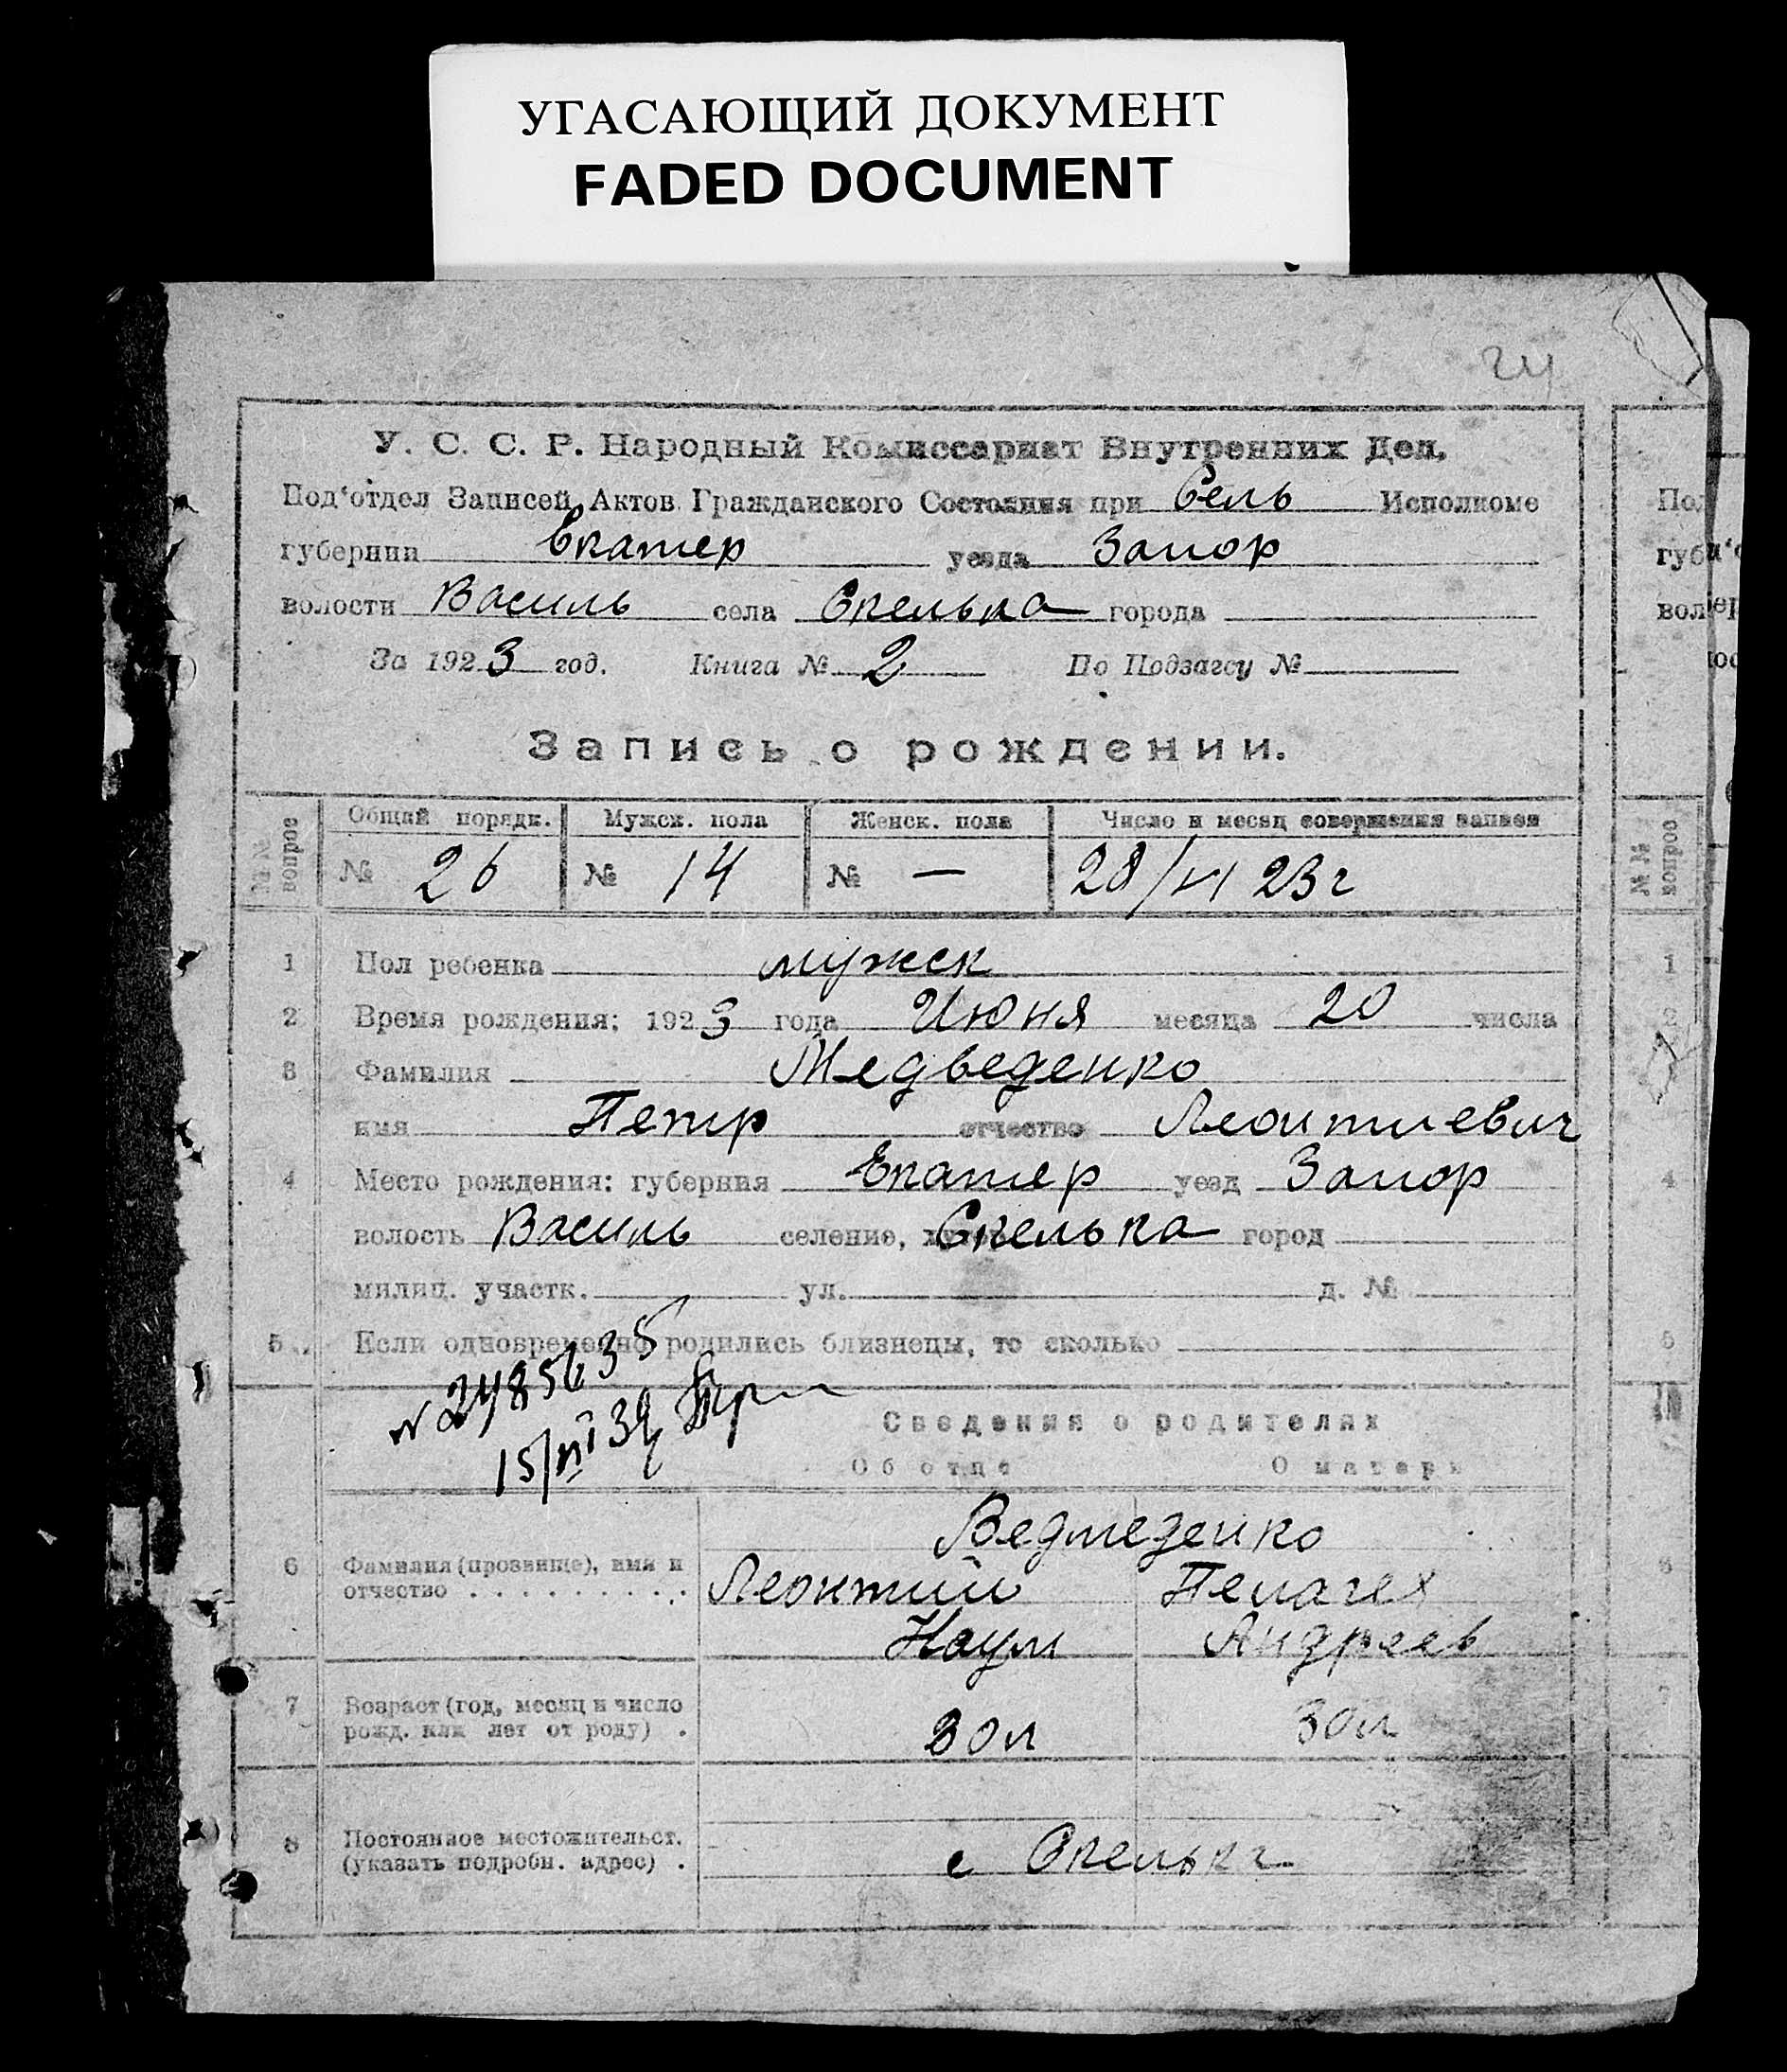 УГАСАЮЩИЙ ДОКУМЕНТ
FADED DOCUMENT
24
У. С. С. Р. Народный Комиссариат Внутренних Дел.
Под‘отдел Записей Актов Гражданского Состояния при Сель Исполкоме
губернии Екатер уезда Запор
волости Василь села Скелька города
За 1923 год. Книга № 2 По Подзагсу №
Запись о рождении.
№ № вопрос Общий порядк. Мужск. пола Женск. пола Число и месяц совершения записи
№ 26 № 14 № — 28/VI 23 г
1 Пол ребенка мужск
2 Время рождения: 1923 года Июня месяца 20 числа
3 Фамилия Медведенко
имя Петр отчество Леонтиевич
4 Место рождения: губерния Екатер уезд Запор
волость Василь селение, Скелька город
милиц. участк. ул. д. №
5 Если одновременно родились близнецы, то сколько
№ 2485635
15/VI 39
Сведения о родителях
Об отце О матери
Ведмеденко
6 Фамилия (прозвище), имя и
отчество Леонтий Пелагея
Наум Андреев
7 Возраст (год, месяц и число
рожд. или лет от роду) . 30 л 30 л
8 Постоянное местожительст.
(указать подробн. адрес) . с Скелька